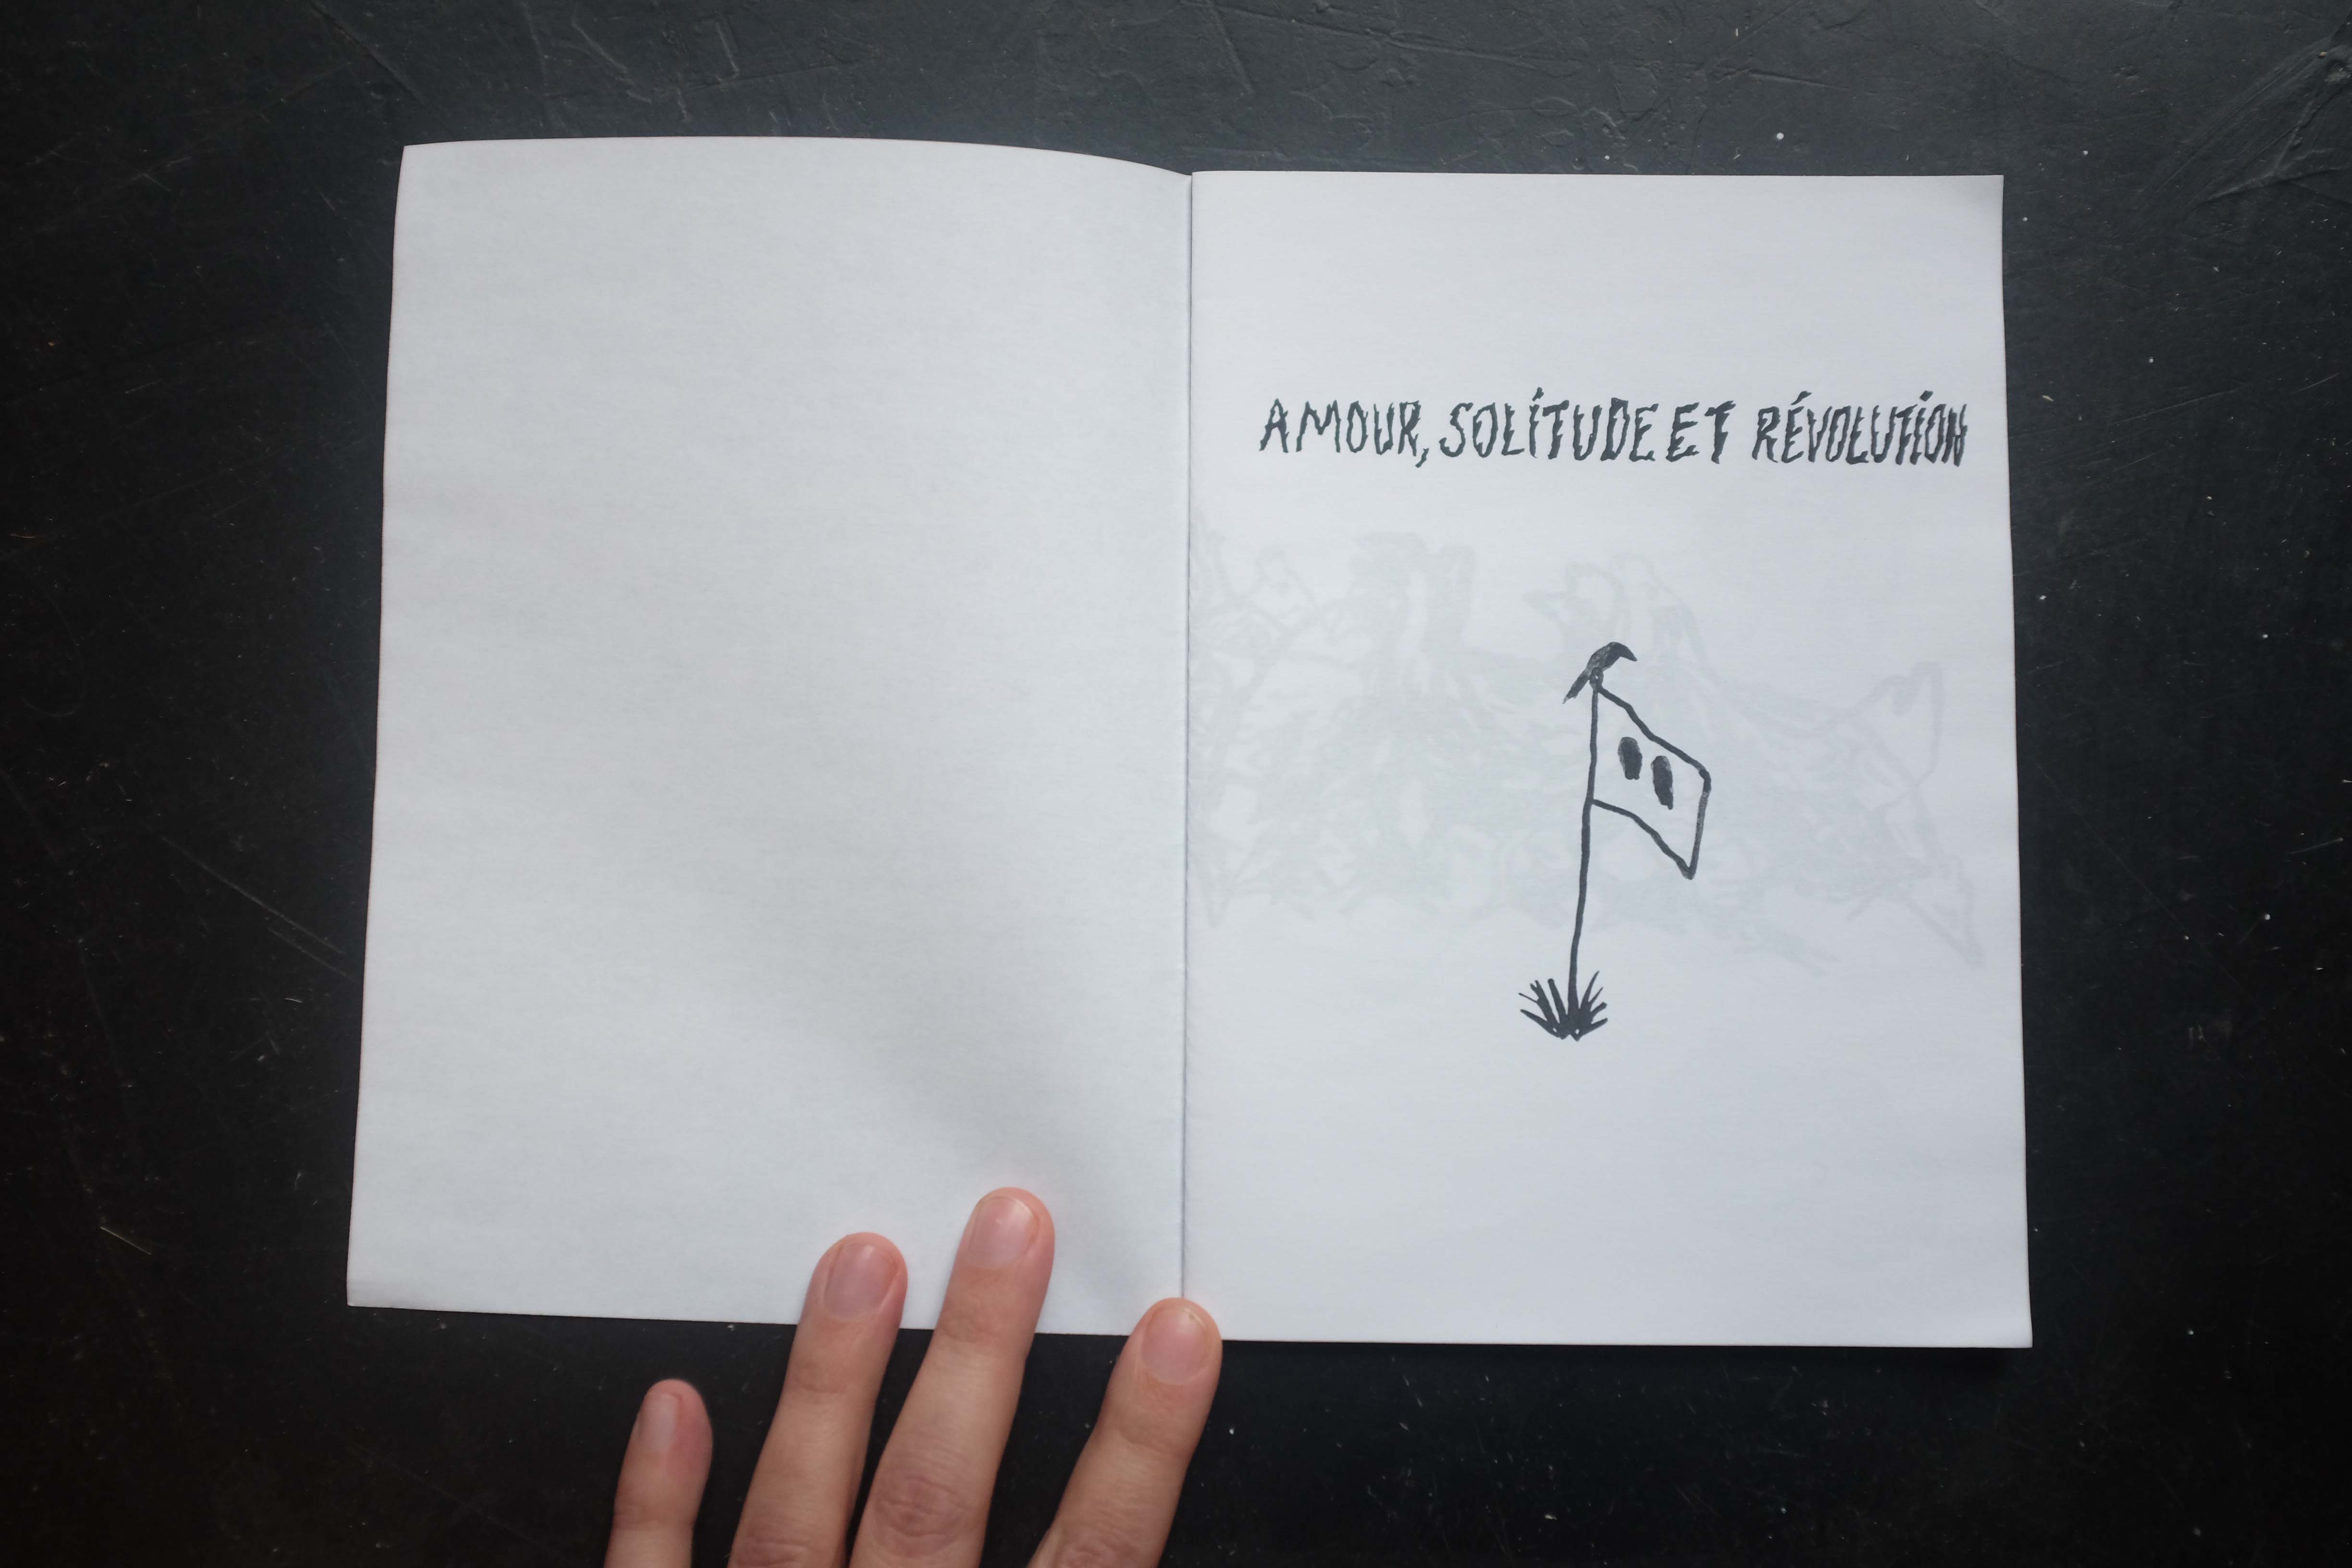 AMOUR, SOLITUDE ET RÉVOLUTION